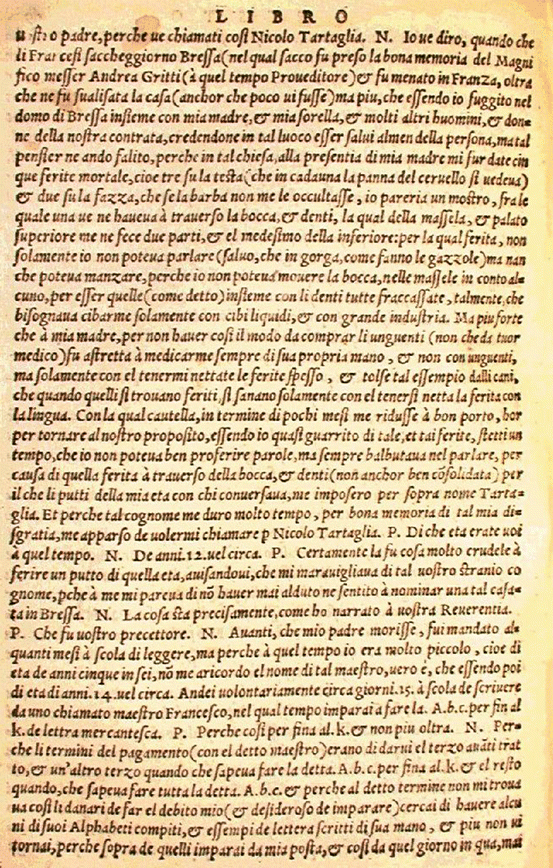 LIBRO
uostro padre, perche ue chiamati cosi Nicolo Tartaglia. N. Io ue diro, quando che
li Francesi saccheggiorno Bressa (nel qual sacco fu preso la bona memoria del Magni
fico messer Andrea Gritti (à quel tempo Proueditore) & fu menato in Franza, oltra
che ne fu sualisata la casa (anchor che poco ui fusse) ma piu, che essendo io fuggito nel
domo di Bressa insieme con mia madre, & mia sorella, & molti altri huomini, & don=
ne della nostra contrata, credendone in tal luoco esser salui almen della persona, ma tal
pensier ne ando falito, perche in tal chiesa, alla presentia di mia madre mi fur date cin
que ferite mortale, cioe tre su la testa (che in cadauna la panna del ceruello si uedeua)
& due su la fazza, che se la barba non me le occultasse, io pareria un mostro, fra le
quale una ue ne haueua à trauerso la bocca, & denti, la qual della massela, & palato
superiore me ne fece due parti, & el medesimo della inferiore: per la qual ferita, non
solamente io non poteua parlare (saluo, che in gorga, come fanno le gazzole) ma nan
che poteua manzare, perche io non poteua mouere la bocca, nelle massele in conto al=
cuno, per esser quelle (come detto) insieme con li denti tutte fraccassate, talmente, che
bisognaua cibarme solamente con cibi liquidi, & con grande industria. Ma piu forte
che à mia madre, per non hauer cosi il modo da comprar li unguenti (non che da tuor
medico) fu astretta à medicarme sempre di sua propria mano, & non con unguenti,
ma solamente con el tenermi nettate le ferite spesso, & tolse tal essempio dalli cani,
che quando quelli si trouano feriti, si sanano solamente con el tenersi netta la ferita con
la lingua. Con la qual cautella, in termine di pochi mesi me ridusse à bon porto, hor
per tornare al nostro proposito, essendo io quasi guarrito di tale, et tai ferite, stetti un
tempo, che io non poteua ben proferire parole, ma sempre balbutaua nel parlare, per
causa di quella ferita à trauerso della bocca, & denti (non anchor ben cõsolidata) per
il che li putti della mia eta con chi conuersaua, me imposero per sopra nome Tarta=
glia. Et perche tal cognome me duro molto tempo, per bona memoria di tal mia di=
sgratia, me apparso de uolermi chiamare p Nicolo Tartaglia. P. Di che eta erate uoi
à quel tempo. N. De anni .12. uel circa. P. Certamente la fu cosa molto crudele à
ferire un putto di quella eta, auisandoui, che mi marauigliaua di tal uostro stranio co
gnome, pche à me mi pareua di nõ hauer mai alduto ne sentito à nominar una tal casa=
ta in Bressa. N. La cosa sta precisamente, come ho narrato à uostra Reuerentia.
P. Che fu uostro precettore. N. Auanti, che mio padre morisse, fui mandato al=
quanti mesi à scola di leggere, ma perche à quel tempo io era molto piccolo, cioe di
eta de anni cinque in sei, nõ me aricordo el nome di tal maestro, uero è, che essendo poi
di eta di anni .14. uel circa. Andei uolontariamente circa giorni .15. à scola de scriuere
da uno chiamato maestro Francesco, nel qual tempo imparai a fare la. A.b.c. per fin al
k. de lettra mercantesca. P. Perche cosi per fina al. k. & non piu oltra. N. Per=
che li termini del pagamento (con el detto maestro) erano di darui el terzo auãti trat
to, & un'altro terzo quando che sapeua fare la detta. A.b.c. per fina al. k. & el resto
quando, che sapeua fare tutta la detta. A.b.c. & perche al detto termine non mi troua
ua cosi li danari de far el debito mio (& desideroso de imparare) cercai di hauere alcu
ni di suoi Alphabeti compiti, & essempi de lettera scritti di sua mano, & piu non ui
tornai, perche sopra de quelli imparai da mia posta, & cosi da quel giorno in qua, mai